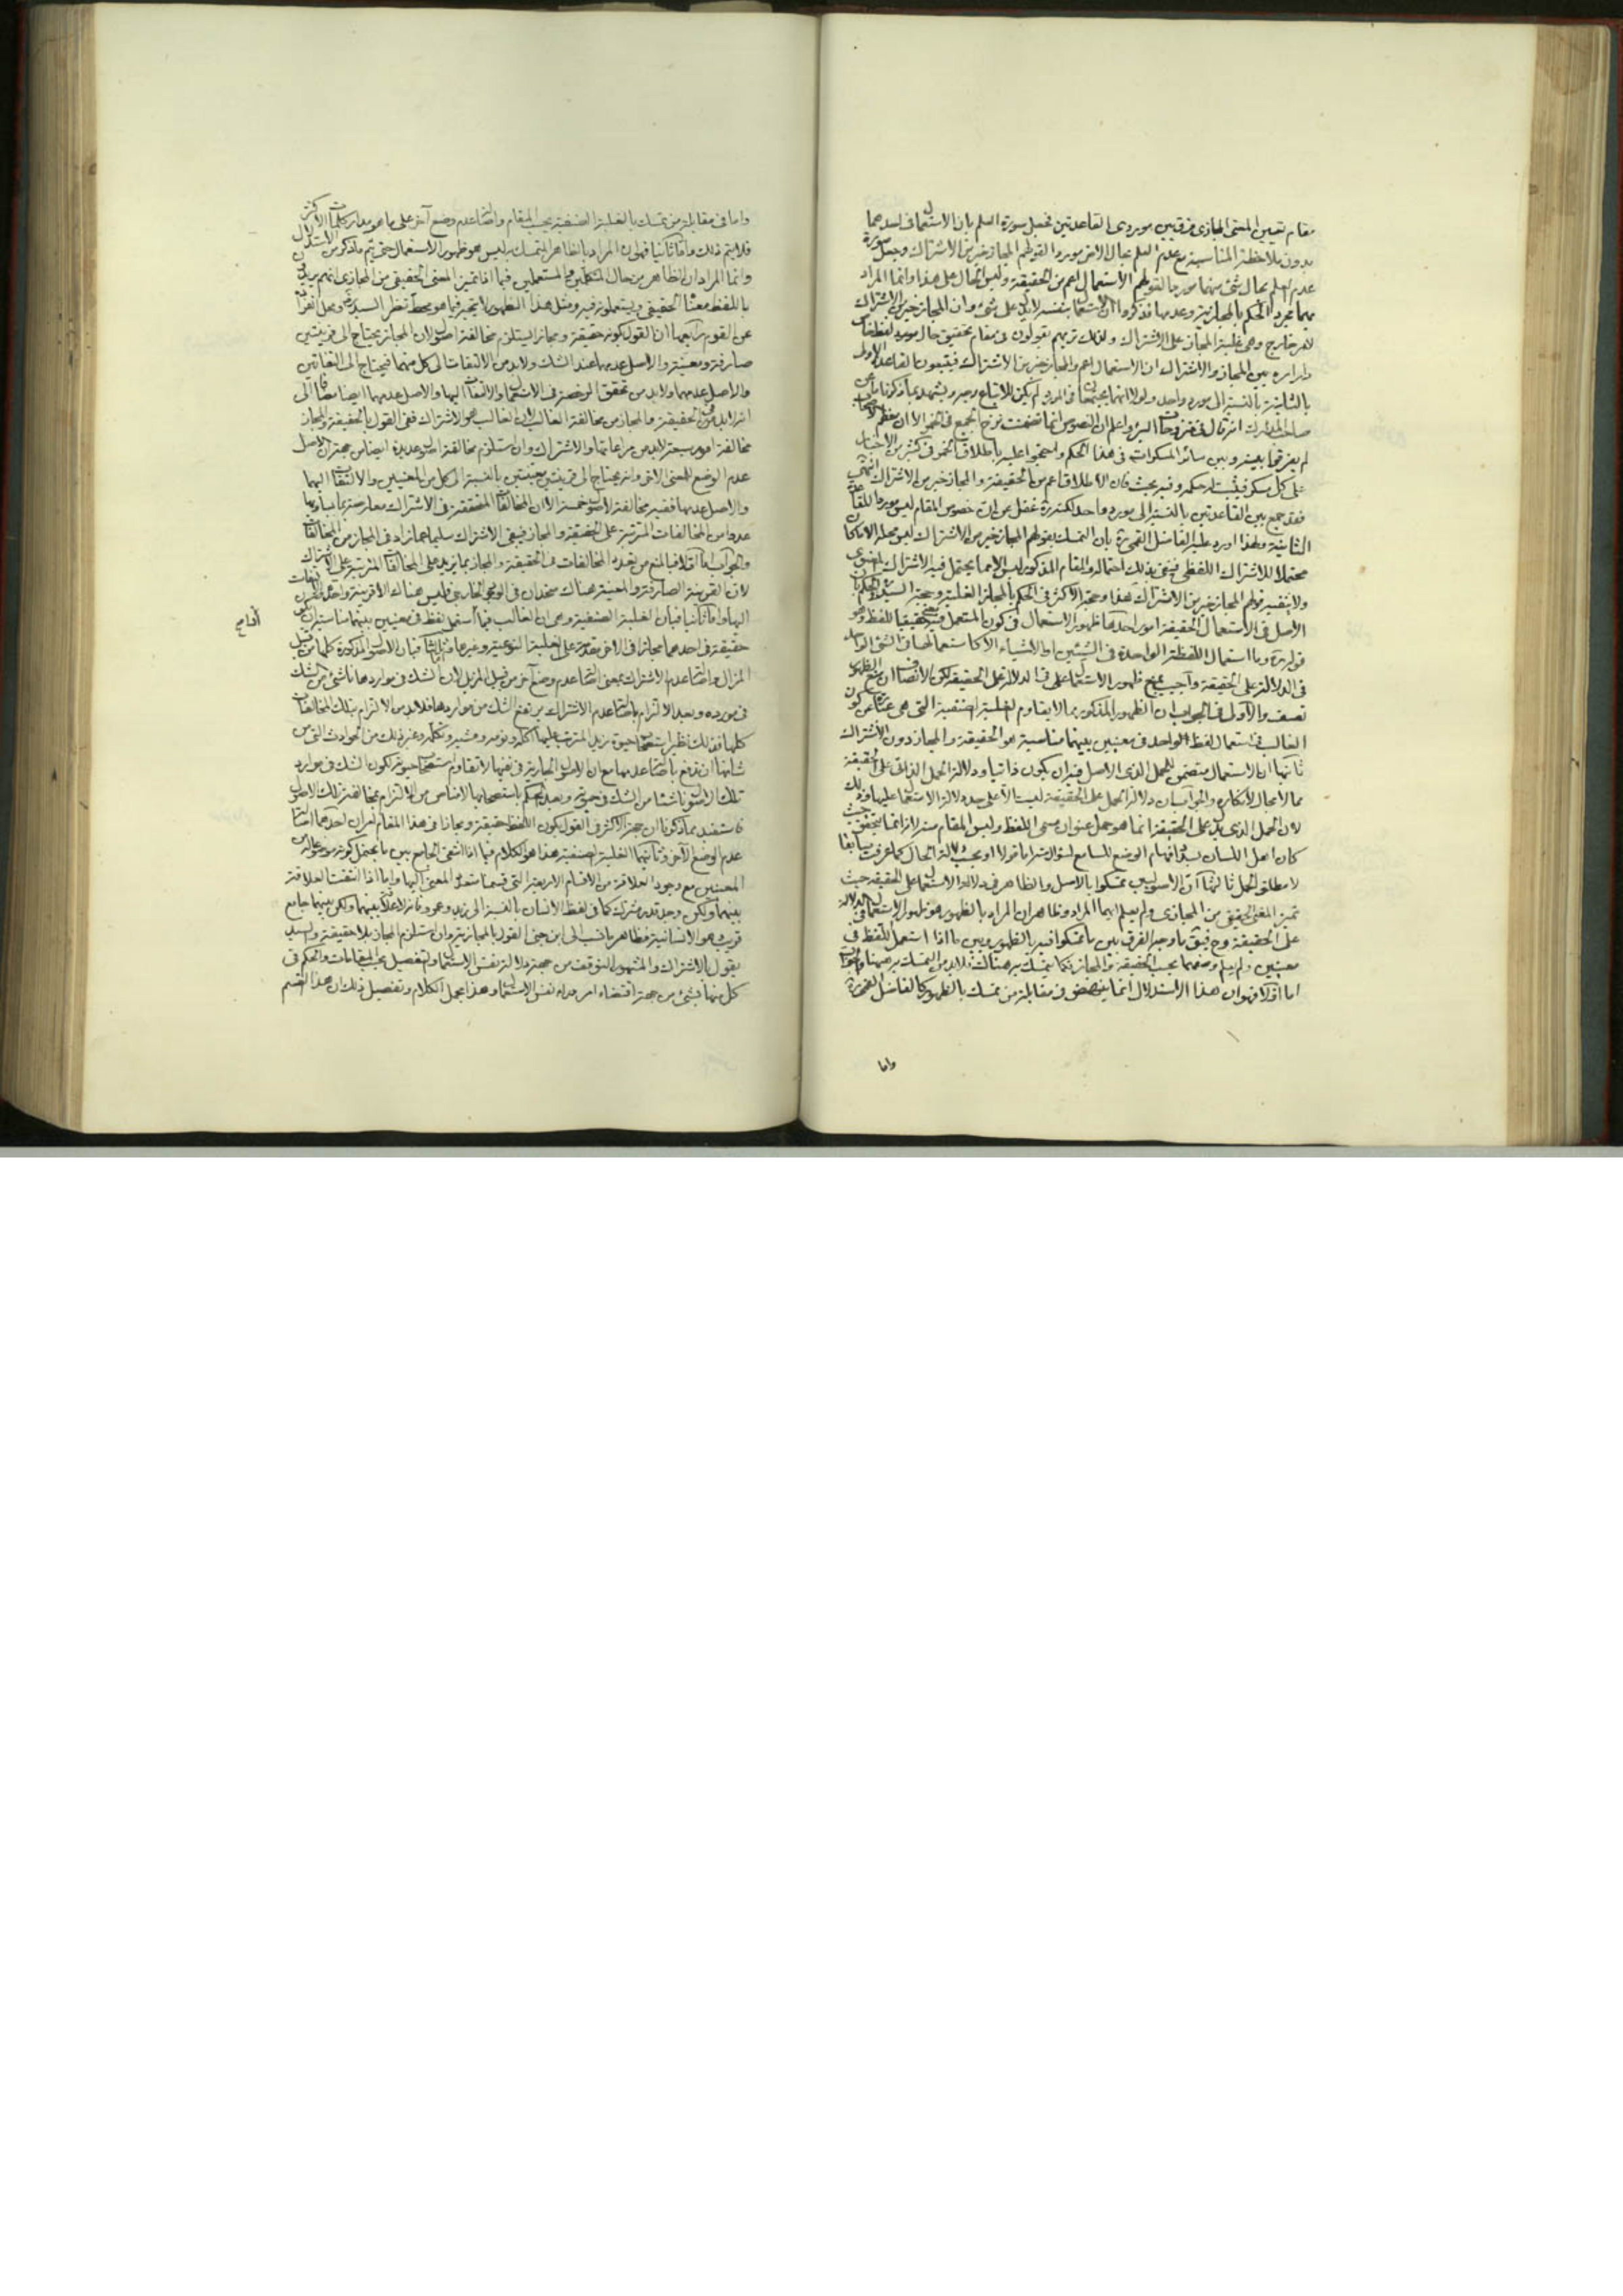 مقام تعيين المعنى المجازى فرق بين موردى القاعدتين فجعل صورة العلم بان الاستعمال فى احدهما
بدون ملاحظة المناسبة مع عدم العلم بحال الاخر موردا لقولهم المجاز خير من الاشتراك وجعل صورة
عدم العلم بحال شئ منهما موردا لقولهم الاستعمال اعم من الحقيقة وليس الحال على هذا وانما المراد
بهما مجرد الحكم بالمجازية وعدمها فذكروا ان الاستعمال بنفسه لا يدل على شئ وان المجاز خير من الاشتراك
لامر خارج وهى غلبة المجاز على الاشتراك ولذلك تريهم يقولون فى مقام تحقيق حال مورد لفظ خاص
دار امره بين المجاز والاشتراك ان الاستعمال اعم والمجاز خير من الاشتراك فيتبعون القاعدة الاولى
بالثانية بالنسبة الى مورد واحد ولولا انهما يجتمعان فى المورد لم يكن للاتباع وجه ويشهد بما ذكرنا ما عن
صاحب المدارك انه قال فى منزوحات البئر واعلم ان النصوص انما تضمنت نزح الجميع فى الخمر الا ان معظم الاصحاب
لم يفرقوا بينه وبين سائر المسكرات فى هذا الحكم واحتجوا عليه باطلاق الخمر فى كثير من الاخبار
على كل مسكر فيثبت له حكمه وفيه بحث فان الاطلاق اعم من الحقيقة والمجاز خير من الاشتراك انتهى
فقد جمع بين القاعدتين بالنسبة الى مورد واحد لكنه ره غفل عن ان خصوص المقام ليس موردا للقاعدة
الثانية ولهذا اورد عليه الفاضل القمى ره بان التمسك بقولهم المجاز خير من الاشتراك ليس محله الا ما كان
محتملا للاشتراك اللفظى فينفى بذلك احتماله والمقام المذكور ليس الا مما يحتمل فيه الاشتراك المعنوى
ولا ينفيه قولهم المجاز خير من الاشتراك هذا وحجة الاكثر فى الحكم بالمجاز الغلبة وحجة السيد ره فى الحكم بان
الاصل فى الاستعمال الحقيقة امور احدها ظهور الاستعمال فى كون المستعمل فيه معنى حقيقيا للفظ وهو
قوله ره وما استعمال اللفظة الواحدة فى الشيئين او الاشياء الا كاستعمالها فى الشئ الواحد
فى الدلالة على الحقيقة واجيب بمنع ظهور الاستعمال على فى الدلالة على الحقيقة لكن الانصاف ان منع الظهور
تعسف والاولى فى الجواب ان الظهور المذكور مما لا يقاوم الغلبة الصنفية التى هى عبارة عن كون
الغالب فى استعمال لفظ الواحد فى معنيين بينهما مناسبة هو الحقيقة والمجاز دون الاشتراك
ثانيها ان الاستعمال متضمن للحمل الذى الاصل فيه ان يكون ذاتيا ودلالة الحمل الذاتى على الحقيقة
مما لا مجال لانكاره والجواب ان دلالة الحمل على الحقيقة ليست الا على حد دلالة الاستعمال عليها وذلك
لان الحمل الذى يدل على الحقيقة انما هو حمل عنوان مسمى اللفظ وليس المقام منه لانه انما يتحقق حيث
كان اهل اللسان بصدد افهام الوضع للسامع لسؤاله اما قولا او بحسب دلالة الحال كما عرفت سابقا
لا مطلق الحمل ثالثها ان الاصوليين تمسكوا بالاصل والظاهر فى دلالة الاستعمال على الحقيقة حيث
تميز المعنى الحقيقى من المجازى ولم يعلم ايهما المراد وظاهر ان المراد بالظهور هو ظهور الاستعمال فى الدلالة
على الحقيقة وح فيق ما وجه الفرق بين ما تمسكوا فيه بالظهور وبين ما اذا استعمل اللفظ فى
معنيين ولم يعلم وصفهما بحسب الحقيقة والمجاز فكما يتمسك به هناك فلا بد من التمسك به هيهنا والجواب
اما اولا فهو ان هذا الاستدلال انما ينهض فى مقابلة من تمسك بالظهور كالفاضل القمى ره
واما
واما فى مقابلة من تمسك بالغلبة الصنفية بحسب المقام واصالة عدم وضع آخر على ما هو مدار كلمات الاكثر
فلا يتم ذلك واما ثانيا فهو ان المراد بالظاهر المتمسك به ليس هو ظهور الاستعمال حتى يتم ما ذكر من الاستدلال
وانما المراد ان الظاهر من حال المتكلمين والمستعملين فيما اذا تميز المعنى الحقيقى من المجازى انهم يريدون
باللفظ معناه الحقيقى ويستعملونه فيه ومثل هذا الظهور لا يجرى فيما هو محط نظر السيد ره ومحل انفراده
عن القوم رابعها ان القول بكونه حقيقة ومجازا يستلزم مخالفة اصول لان المجاز يحتاج الى قرينتين
صارفة ومعينة والاصل عدمهما عند الشك ولا بد من الالتفات الى كل منهما فيحتاج الى التفاتين
والاصل عدمهما ولا بد من تحقق الرخصة فى الاستعمال والالتفات اليها والاصل عدمهما ايضا مضافا الى
انه لا بد فى الحقيقة والمجاز من مخالفة الغالب لان الغالب هو الاشتراك ففى القول بالحقيقة والمجاز
مخالفة امور سبعة لا بد من مراعاتها والاشتراك وان استلزم مخالفة اصول عديدة ايضا من جهة ان الاصل
عدم الوضع للمعنى الاخر وانه يحتاج الى قرينتين معينتين بالنسبة الى كل من المعنيين والالتفات اليهما
والاصل عدمها ففيه مخالفة لاصول خمسة الا ان المخالفات المتحققة فى الاشتراك معارضة بما يساويها
عددا من المخالفات المترتبة على الحقيقة والمجاز فيبقى الاشتراك سليما عما زاد فى المجاز من المخالفات
والجواب اما اولا فبالمنع من تعدد المخالفات فى الحقيقة والمجاز بما يزيد على المخالفات المترتبة على الاشتراك
لان القرينة الصارفة والمعينة هناك متحدان فى الوجود الخارجى فليس هناك الا قرينة واحدة والتفات
اليها واما ثانيا فبان الغلبة الصنفية وهى ان الغالب فيما استعمل لفظ فى معنيين بينهما مناسبة ان يكون
حقيقة فى احدهما مجازا فى الاخر مقدمة على الغلبة النوعية وغيرها واما ثالثا فبان الاصول المذكورة كلها من قبيل
المزال واصالة عدم الاشتراك بمعنى اصالة عدم وضع آخر من قبيل المزيل لان الشك فى مواردها ناشئ من الشك
فى مورده وبعد الالتزام باصالة عدم الاشتراك يرتفع الشك من مواردها فلا بد من الالتزام بتلك المخالفات
كلها فذلك نظير استصحاب حيوة زيد المترتب عليها اكله ونومه ومشيه وتكلمه وغير ذلك من الحوادث التى من
شانها ان تدفع باصالة عدمها مع ان الاصول الجارية فى نفيها لا تقاوم استصحاب حيوته لكون الشك فى موارد
تلك الاصول ناشئا من الشك فى حيوته وبعد الحكم باستصحابها لا مناص من الالتزام بمخالفة تلك الاصول
فاستفيد مما ذكرنا ان حجة الاكثر فى القول بكون اللفظ حقيقة ومجازا فى هذا المقام امران احدهما اصالة
عدم الوضع الاخر وثانيهما الغلبة الصنفية هذا هو الكلام فيما اذا انتفى الجامع بين ما يحتمل كونه موضوعا له من
المعنيين مع وجود العلاقة من الاقسام الاربعة التى قسمنا متعدد المعنى اليها واما اذا انتفت العلاقة
بينهما ولكن وجد قدر مشترك كما فى لفظ الانسان بالنسبة الى زيد وعمرو فانه لا علاقة بينهما ولكن بينهما جامع
قريب هو الانسانية فظاهر ما نسب الى ابن جنى القول بالمجازية وان استلزم المجاز بلا حقيقة والسيد
يقول بالاشتراك والمشهور التوقف من جهة دلالة نفس الاستعمال والتفصيل بحسب المقامات والحكم فى
كل منها بشئ من جهة اقتضاء امر وراء نفس الاستعمال وهذا مجمل الكلام وتفصيل ذلك ان هذا القسم